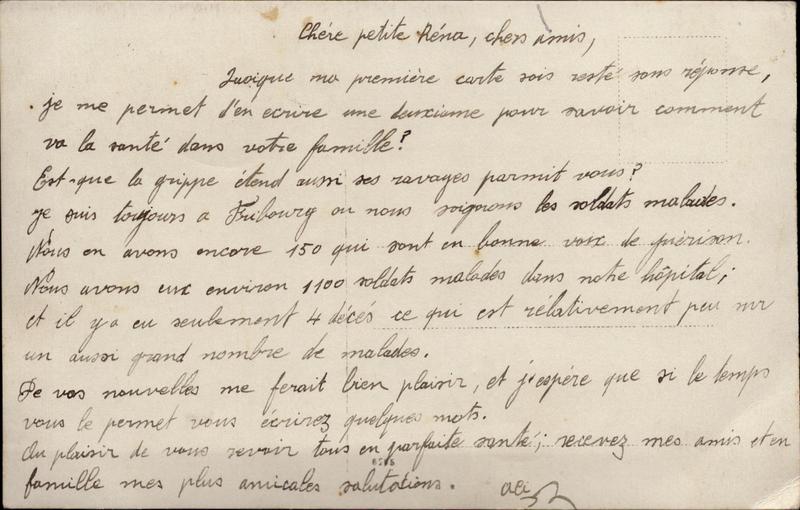 Chére petite Réna, chers amis,
Quoique ma première carte sois resté sans réponse,
je me permet d'en ecrire une deuxieme pour savoir comment
va la santé dans votre famille?
Est-que la grippe étend aussi ses ravages parmit vous?
je suis toujours a Fribourg ou nous soignons les soldats malades.
Nous en avons encore 150 qui sont en bonne voix de guérison.
Nous avons eux environ 1100 soldats malades dans notre hôpital;
et il y a eu seulement 4 décés ce qui est rélativement peu sur
un aussi grand nombre de malades.
De vos nouvelles me ferait bien plaisir, et j'espére que si le temps
vous le permet vous écrirez quelques mots.
Au plaisir de vous revoir tous en parfaite santé; recevez mes amis et en
famille mes plus amicales salutations.